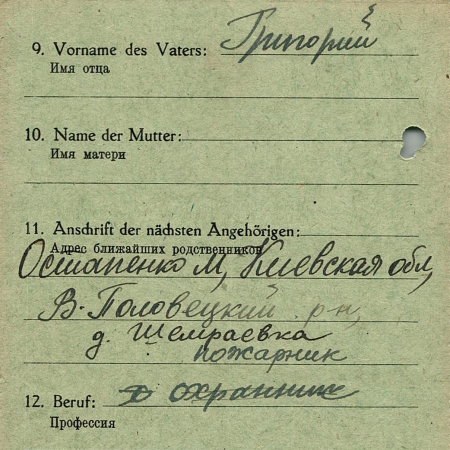 9. Vorname des Vaters: Григорий
Имя отца
10. Name der Mutter:
Имя матери
11. Anschrift der nächsten Angehörigen:
Адрес ближайших родственников
Остапенко М, Киевская обл,
В-Половецкий р-н,
д. Шемраевка
пожарник
12. Beruf: охранник
Профессия